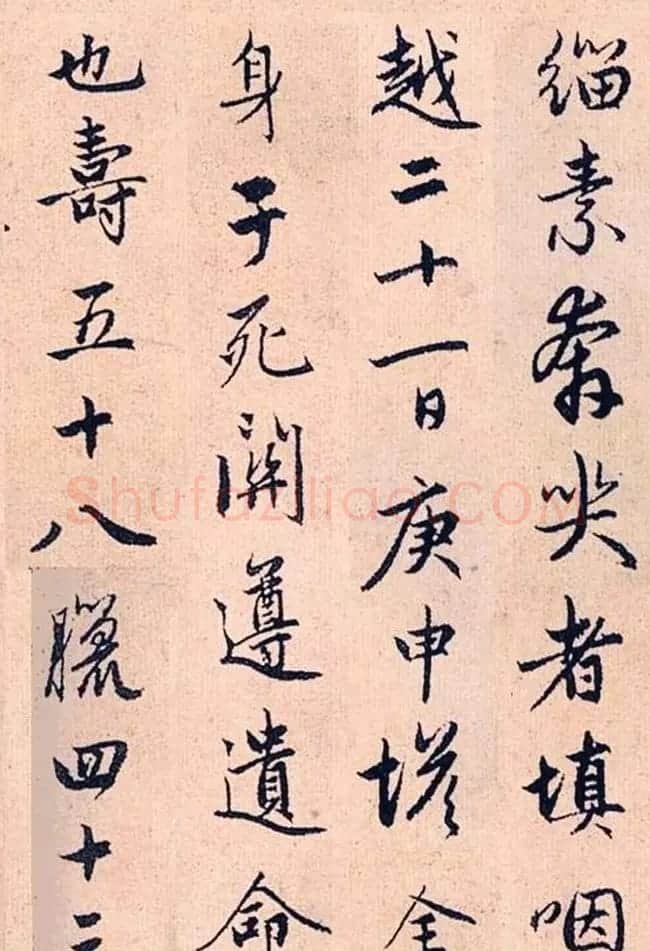 緇素奔哭者填咽
越二十一日庚申塔全
身于死關遵遺命
也壽五十八臘四十二
Shufaziliao.COM